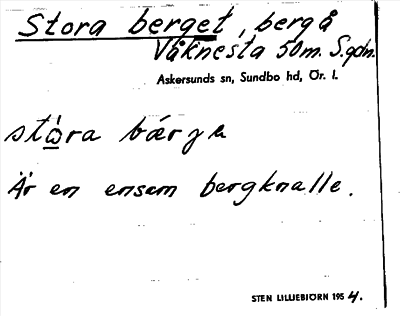 Stora berget, berg å
Våknesta 50m. S. gdn.
Askersunds sn, Sundbo hd, Ör. l.
störa bärge
Är en ensam bergknalle.
STEN LILLIEBJÖRN 1954.